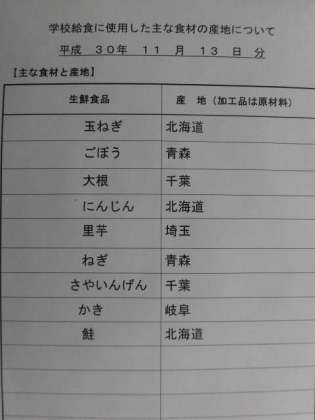 学校給食に使用した主な食材の産地について
平成 30年 11 月 13 日 分
【主な食材と産地】
生鮮食品 産 地（加工品は原材料）
玉ねぎ 北海道
ごぼう 青森
大根 千葉
にんじん 北海道
里芋 埼玉
ねぎ 青森
さやいんげん 千葉
かき 岐阜
鮭 北海道